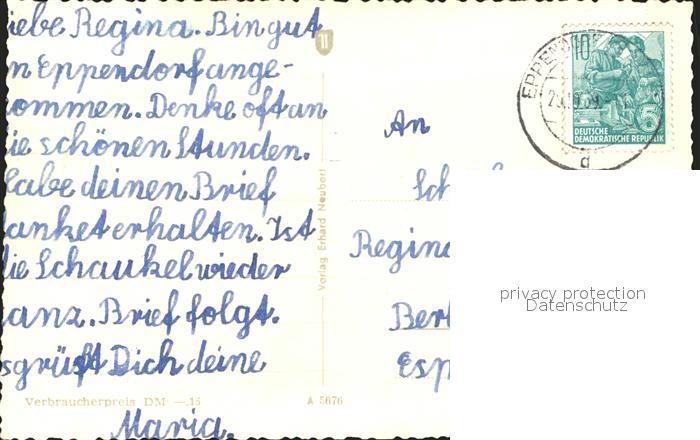 iebe Regina. Bin gut
n Eppendorf ange-
ommen. Denke oft an
ie schönen Stunden.
abe deinen Brief
anket erhalten. Ist
ie Schaukel wieder
anz. Brief folgt.
sgrüßt Dich deine
Maria.
Verbraucherpreis DM —,15
A 5676
Verlag Erhard Neubert
An
Sch
Regina
Ber
Esp
10
5
DEUTSCHE
DEMOKRATISCHE REPUBLIK
EPPEND
d
privacy protection
Datenschutz